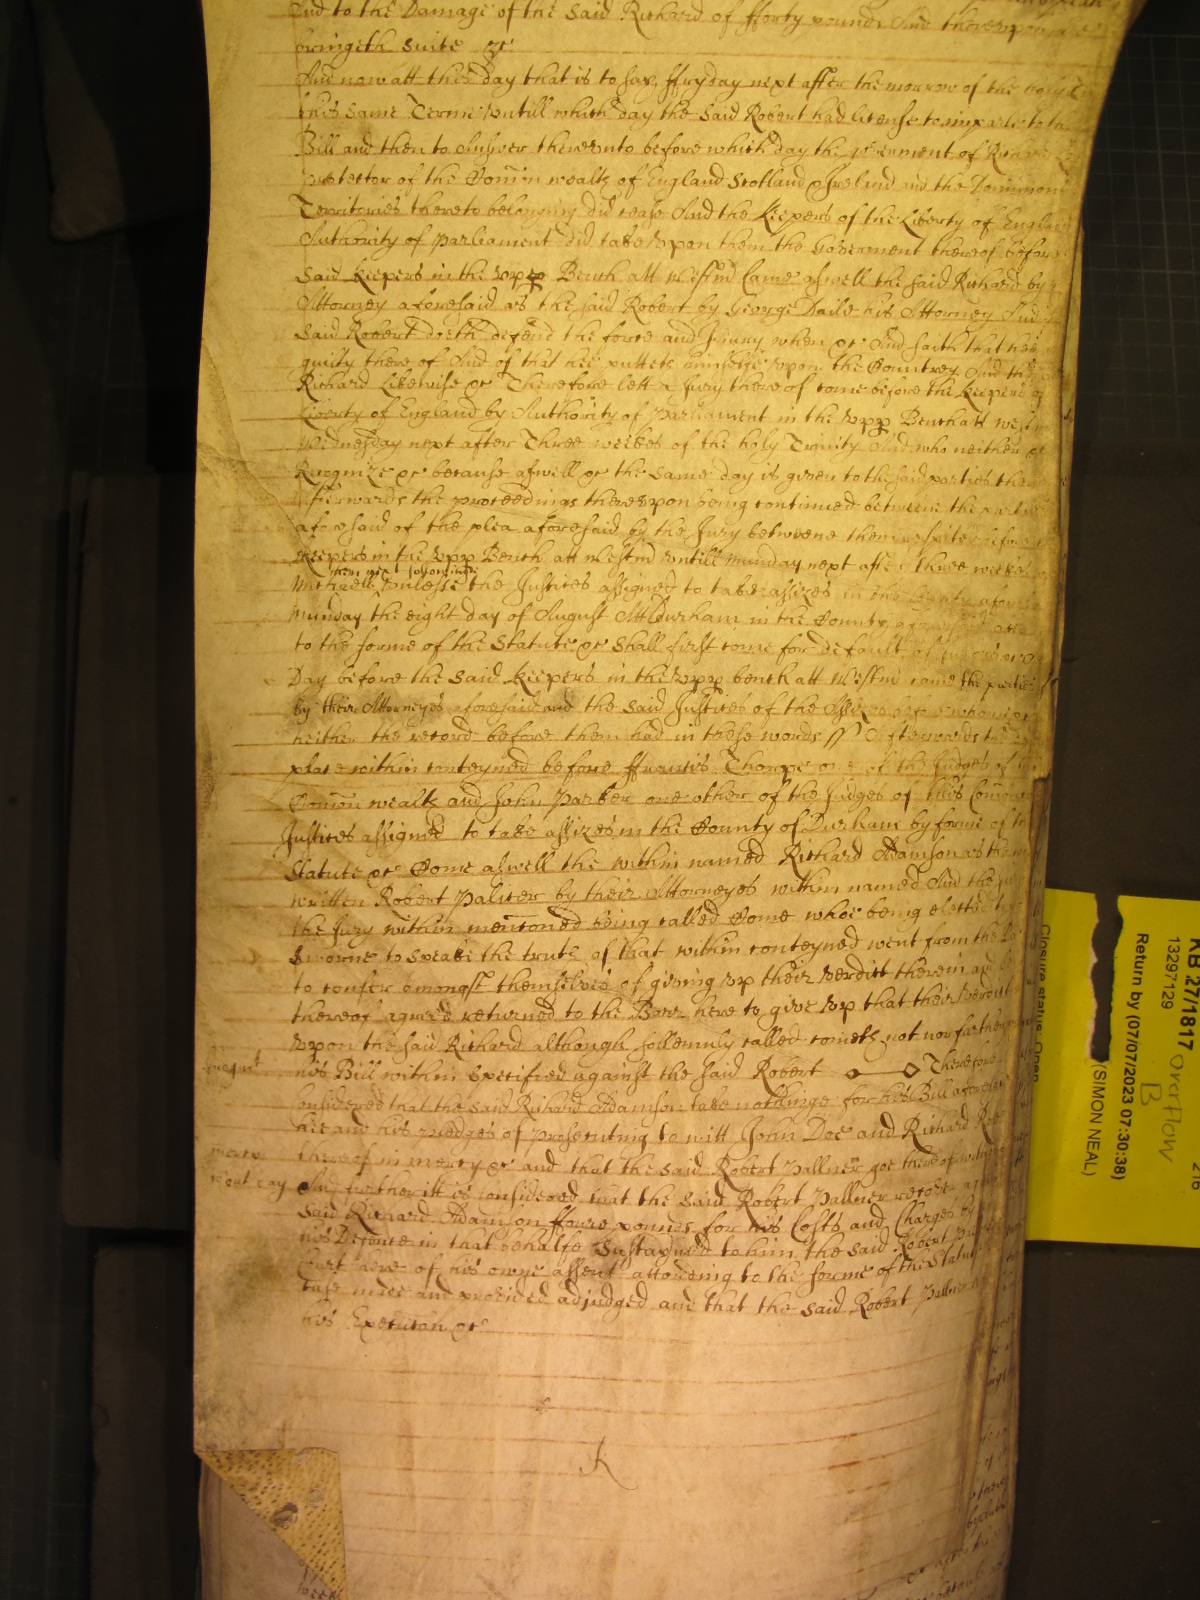 And to the Damage of the said Richard of fforty pounds And thereupon
bringeth suite &c
And now att this day that is to say ffryday next after the morrow of the holy
this same Terme untill which day the said Robert had license to imparle to the
Bill and then to Answer thereunto before which day the government of Richard
protector of the Comon wealth of England Scotland & Ireland and the Dominions
Territories thereto belonging did cease And the Keepers of the Liberty of England
Authority of Parliament did take upon them the Goverment thereof before
said Keepers in the upp Bench att Westmr Came aswell the said Richard by
Attorney aforesaid as the said Robert by George Daile his Attorney And
said Robert doeth defend the force and Injury when &c And saith that hee
guilty there of And of this hee putteth himselfe upon the Countrey And the
Richard Likewise &c Therefore lett a Jury there of come before the Keepers of
Liberty of England by Authority of Parliament in the upp Bench att Westmr
Wednesday next after Three weekes of the holy Trinity And who neither &c
Recognize &c because aswell &c the same day is given to the said parties there
Afterwards the proceedings thereupon being continued betweene the parties
aforesaid of the plea aforesaid by the Jury betweene them respited before
Keepers in the upp Bench att Westmr untill Munday next after three weekes
then next followinge
Michaell unlesse the Justices assigned to take assizes in the County aforesaid
Munday the eight day of August Att Durham in the County aforesaid
to the forme of the Statute &c shall first come for default of
Day before the said Keepers in the upp bench att Westmr came the parties
by their Attorneyes aforesaid and the said Justices of the Assizes before whom
neither the record before them had in these words ss Afterwards
place within conteyned before ffrancis Thorpe one of the Judges of
Comon wealth and John Parker one other of the Judges of this Comon
Justices assigned to take assizes in the County of Durham by forme of the
Statute &c Come aswell the within named Richard Adamson as the
written Robert Paliser by their Attorneyes within named And the
the Jury within mencioned being called Come whoe being elected
Sworne to speake the truth of that within conteyned went from the
to confer amongst themselves of giving up their verdict therein and
thereof agreed returned to the Barr here to give up that their verdict
upon the said Richard although sollemnly called cometh not nor further
his Bill within specified against the said Robert Therefore
Considered that the said Richard Adamson take nothinge for his Bill aforesaid
hee and his pledges of prosecuting to witt John Doe and Richard Roe
thereof in mercy &c and that the said Robert Pallner goe thereof without
out day
And further itt is considered that the said Robert Pallner recover
said Richard Adamson ffoure pounds for his Costs and Charges by
his Defence in that behalfe Sustayned to him the said Robert
Court here of his owne assent according to the forme of the Statute
case made and provided adjudged and that the said Robert Pallner
his Execucon &c
KB 27/1817
Overflow
B
13297129
Return by (07/07/2023 07:30:38)
(SIMON NEAL)
Closure status: Open